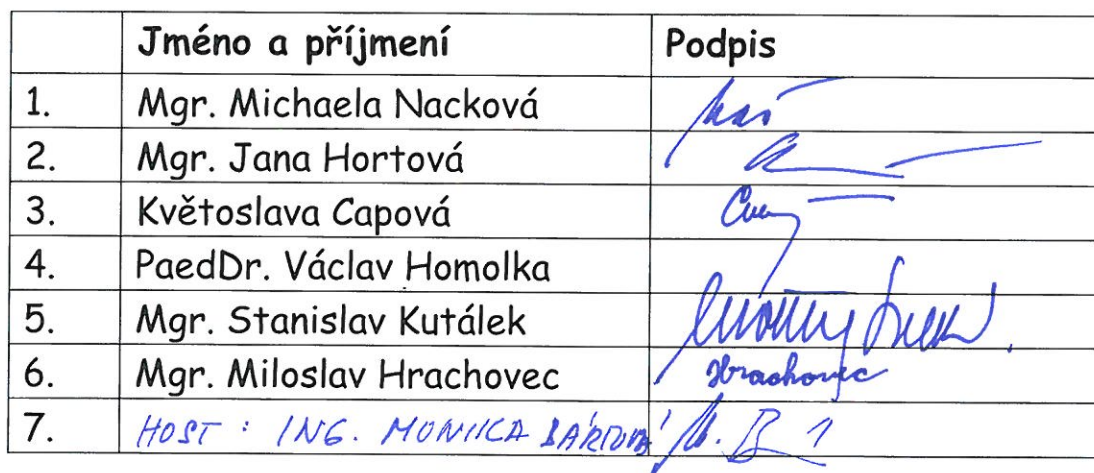 Jméno a příjmení Podpis
1. Mgr. Michaela Nacková
2. Mgr. Jana Hortová
3. Květoslava Capová
4. PaedDr. Václav Homolka
5. Mgr. Stanislav Kutálek
6. Mgr. Miloslav Hrachovec Hrachovec
7. HOST : ING. MONIKA BÁRTOVÁ